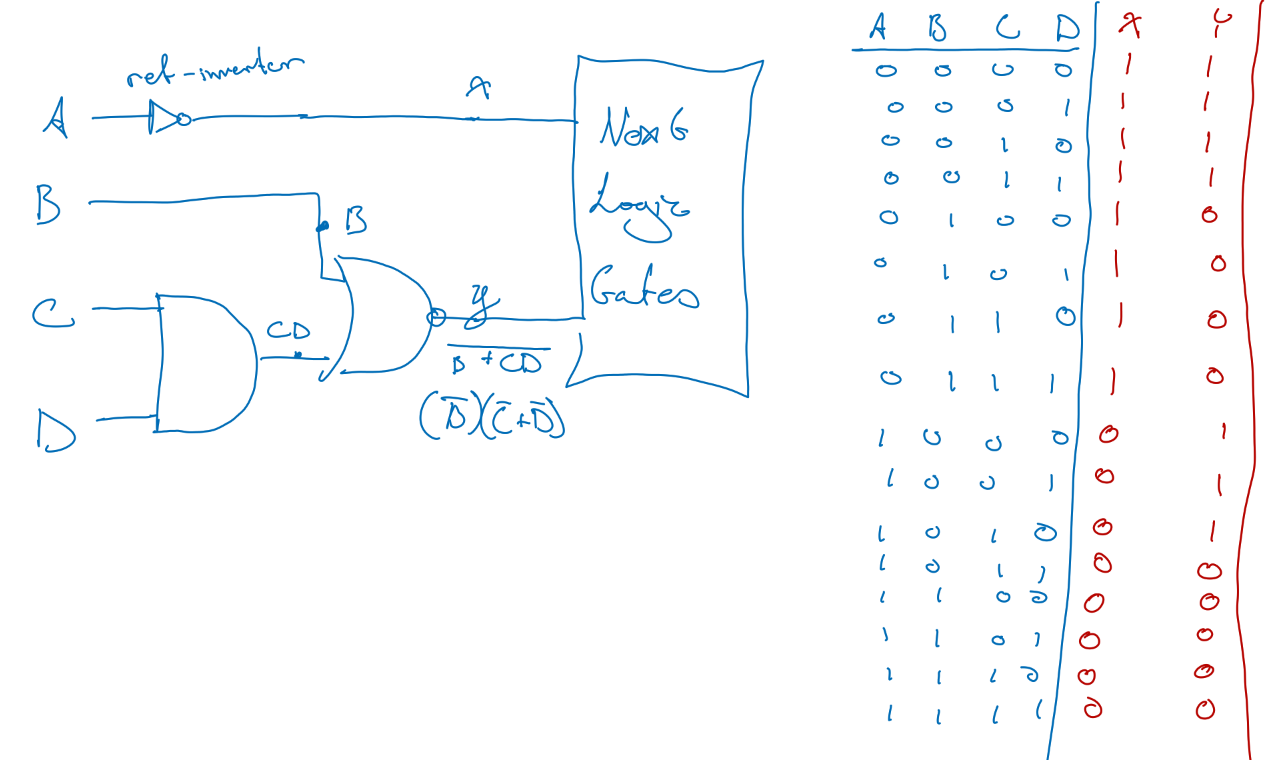 ref-inverter
A
X
B
B
C
CD
D
y
B + CD
(B̅)(C̅+D̅)
Nex6
Logic
Gates
A B C D X Y
0 0 0 0 1 1
0 0 0 1 1 1
0 0 1 0 1 1
0 0 1 1 1 1
0 1 0 0 1 0
0 1 0 1 1 0
0 1 1 0 1 0
0 1 1 1 1 0
1 0 0 0 0 1
1 0 0 1 0 1
1 0 1 0 0 1
1 0 1 1 0 0
1 1 0 0 0 0
1 1 0 1 0 0
1 1 1 0 0 0
1 1 1 1 0 0